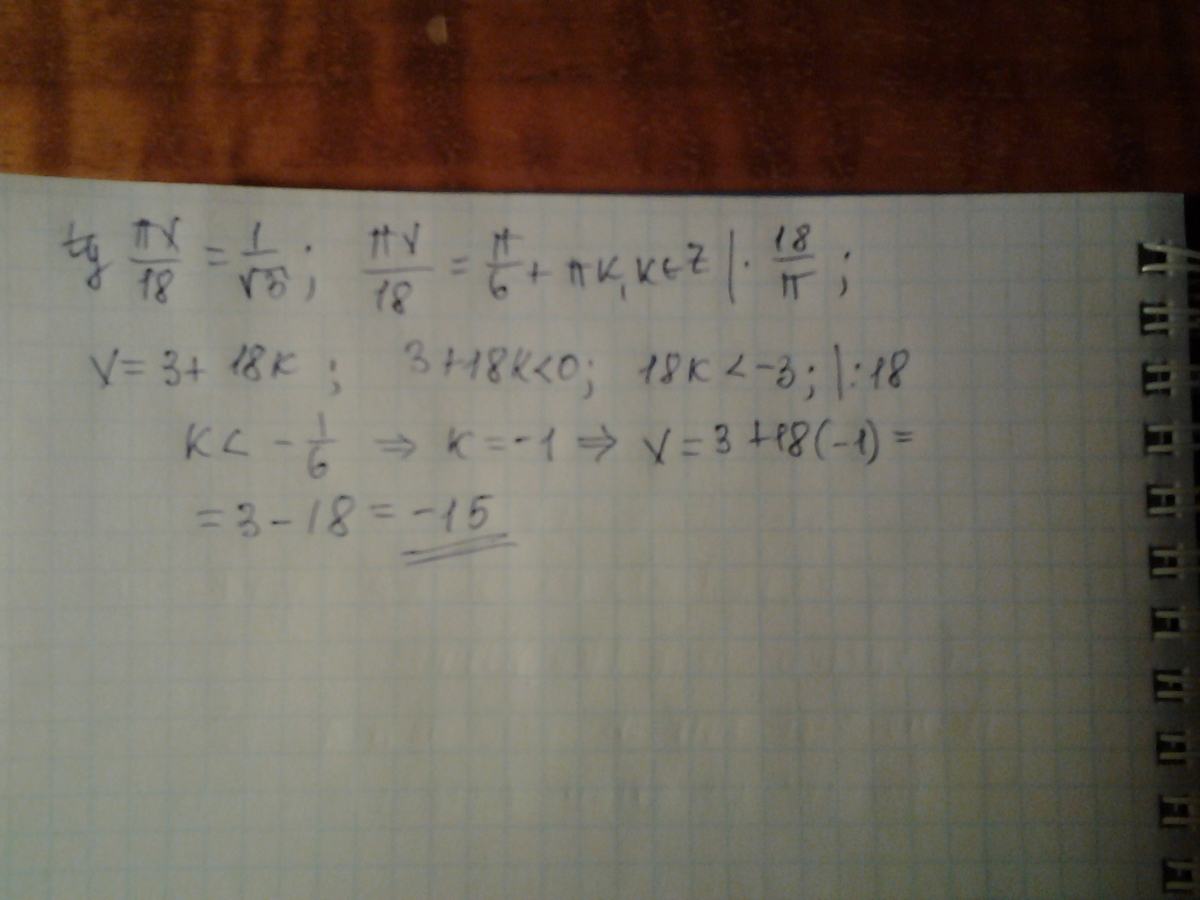 tg πx/18 = 1/√3; πx/18 = π/6 + πk, k∈Z | · 18/π;
x = 3 + 18k; 3+18k<0; 18k < -3; | :18
k < - 1/6 ⇒ k = -1 ⇒ x = 3 +18(-1) =
= 3 - 18 = -15